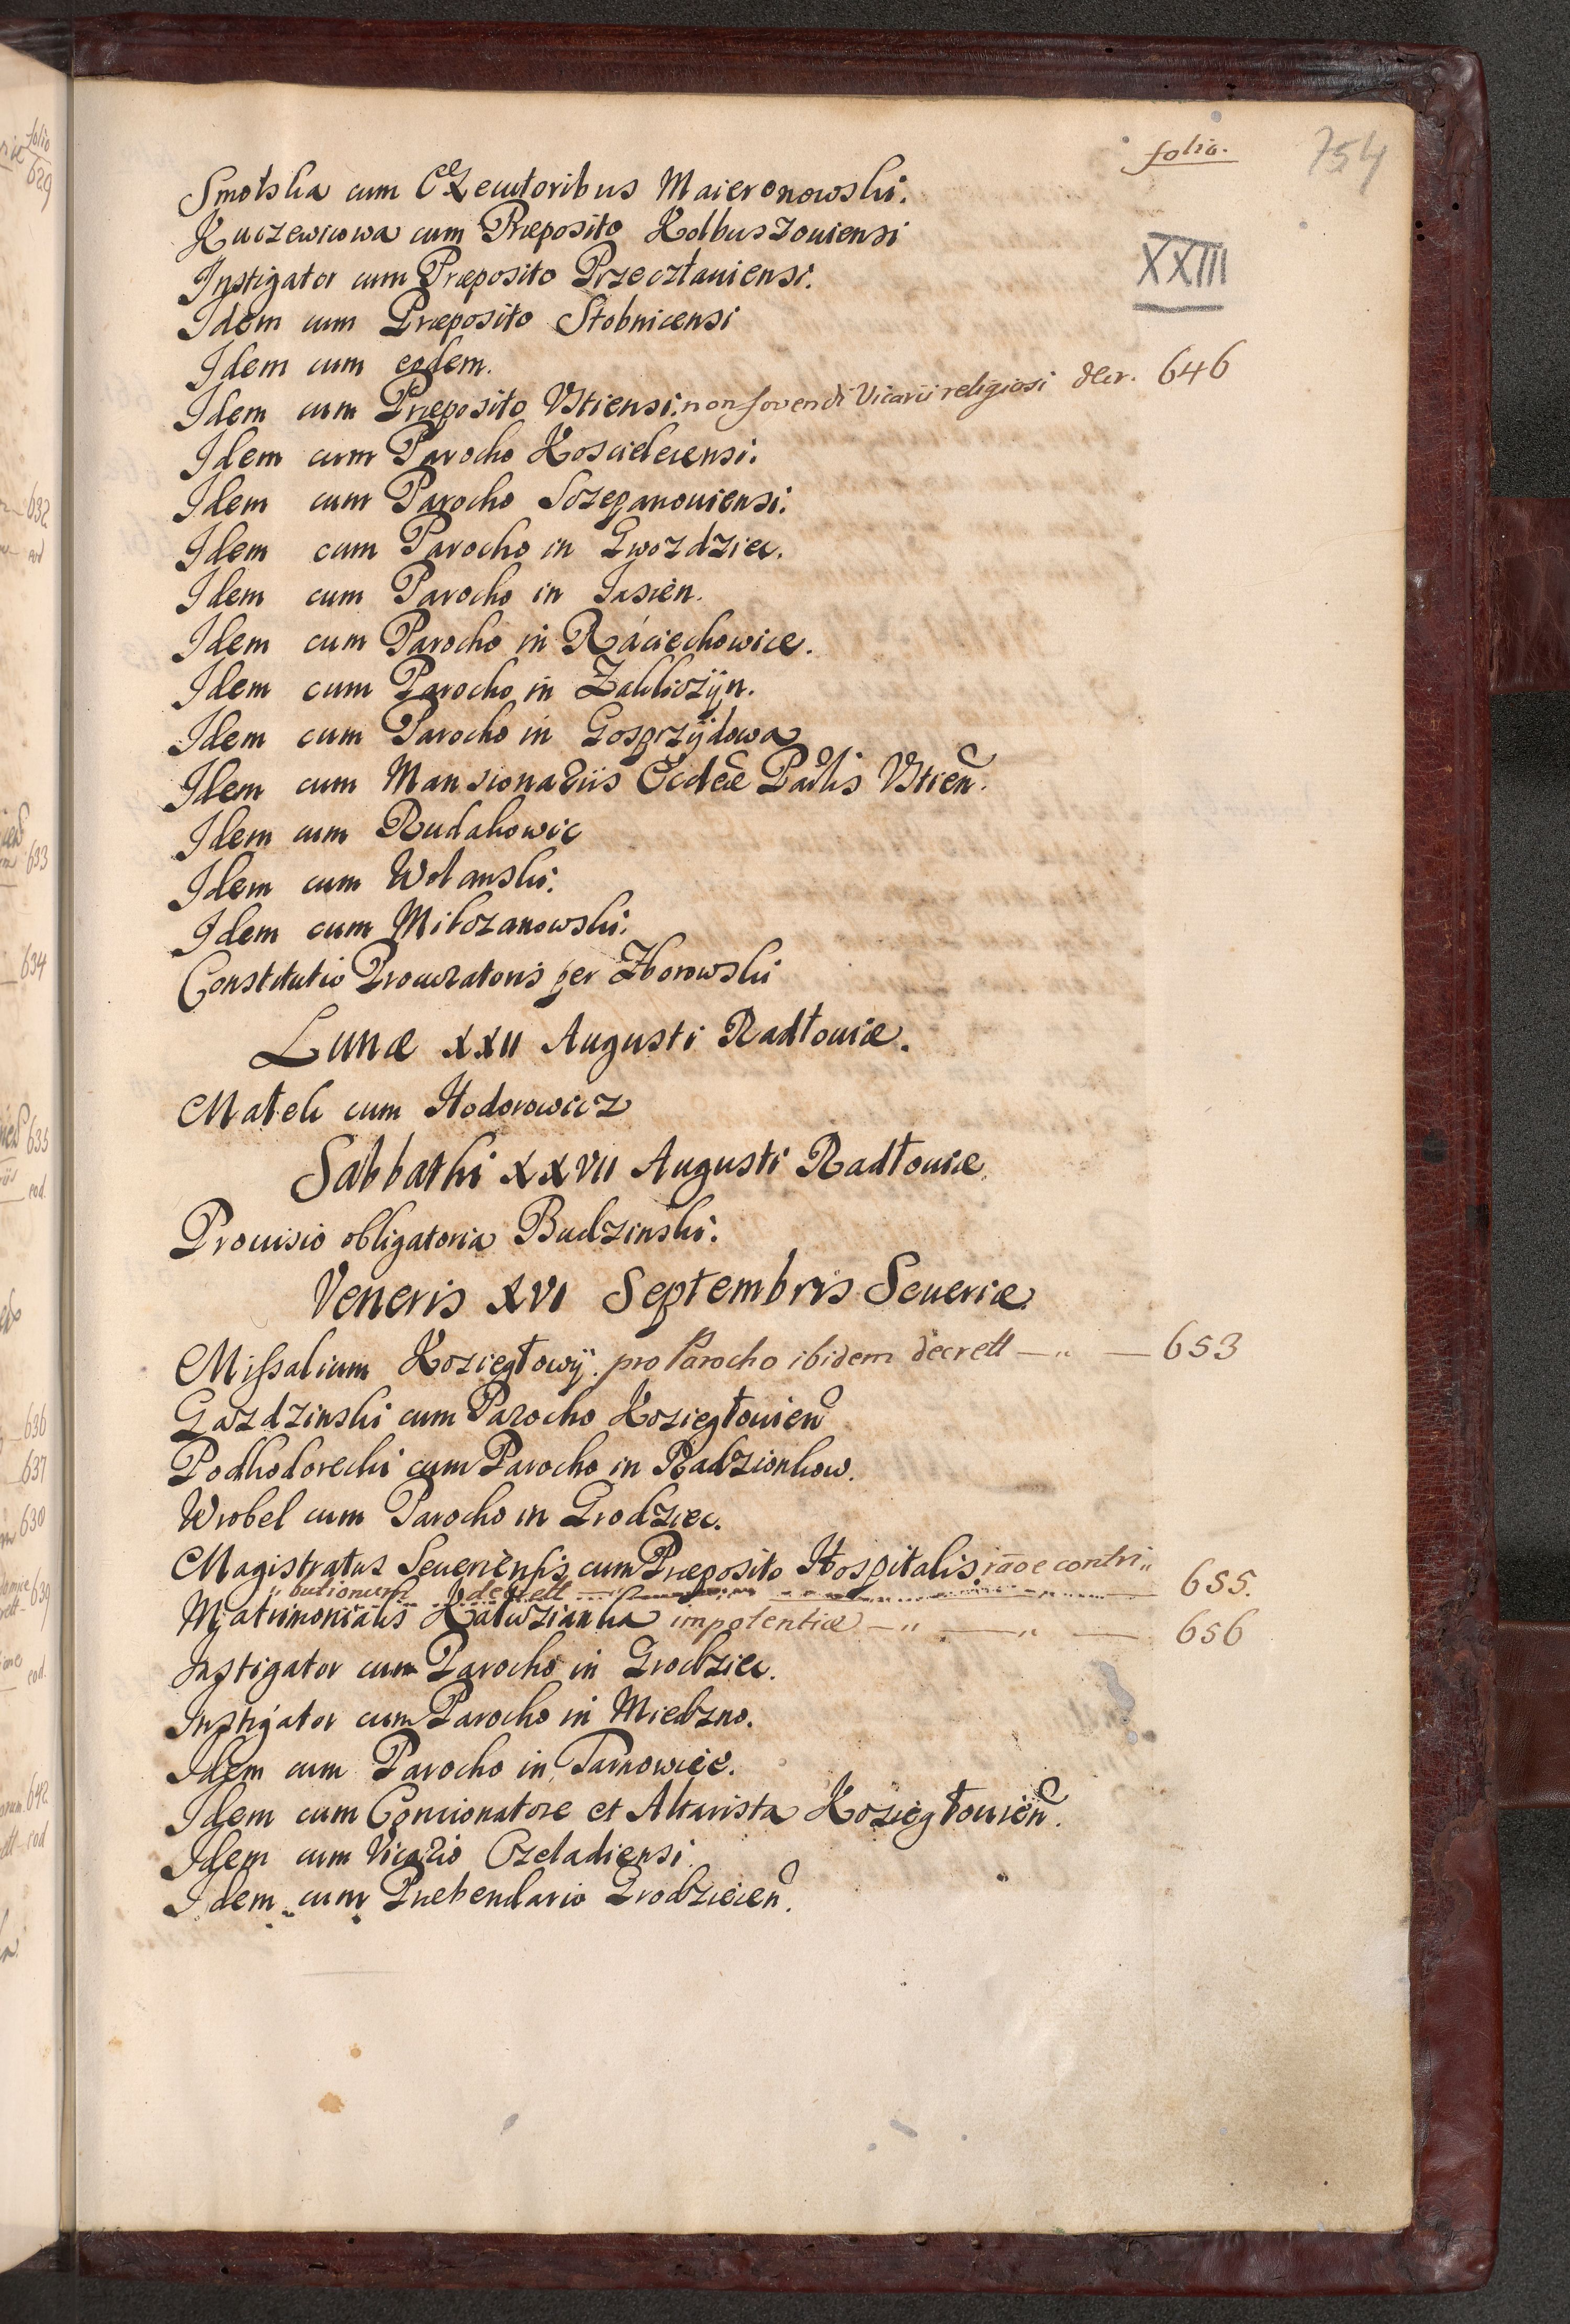 folio.
754
XXIII
Smolska cum Executoribus Maieronowski.
Kuczewicowa cum Præposito Kolbuszouiensi
Instigator cum Præposito Przecztauiensi.
Idem cum Præposito Stobnicensi
Idem cum eodem.
Idem cum Præposito Vstiensi. non fovendi Vicarii religiosi decr. 646
Idem cum Parocho Koscielecensi.
Idem cum Parocho Sczepanouiensi.
Idem cum Parocho in Gwozdziec.
Idem cum Parocho in Jasien.
Idem cum Parocho in Raciechowice.
Idem cum Parocho in Zakliczÿn.
Idem cum Parocho in Gosprzÿdowa
Idem cum Mansionariis Ecclæ Parlis Vstien.
Idem cum Rudakowic
Idem cum Wolanski.
Idem cum Milczanowski.
Constitutio Procuratoris per Zborowski
Lunæ XXII Augusti Radłouiæ.
Matek cum Hodorowicz
Sabbathi XXVII Augusti Radłouiæ.
Prouisio obligatoria Budzinski.
Veneris XVI Septembris Seueriæ
Missalium Koziegłowÿ. pro Parocho ibidem decrett — " — 653
Gazdzinski cum Parocho Koziegłouien
Podhodorecki cum Parocho in Radzionkow.
Wrobel cum Parocho in Grodziec.
Magistratus Seueriensis cum Præposito Hospitalis raōe contri"
"butionum decrett — 655.
Matrimonialis Kaluzianka impotentiæ — " — " — 656
Instigator cum Parocho in Grodziec.
Instigator cum Parocho in Miedzno.
Idem cum Parocho in Tarnowice.
Idem cum Concionatore et Altarista Koziegłouien.
Idem cum Vicario Czeladiensi
Idem cum Præbendario Grodziecien.